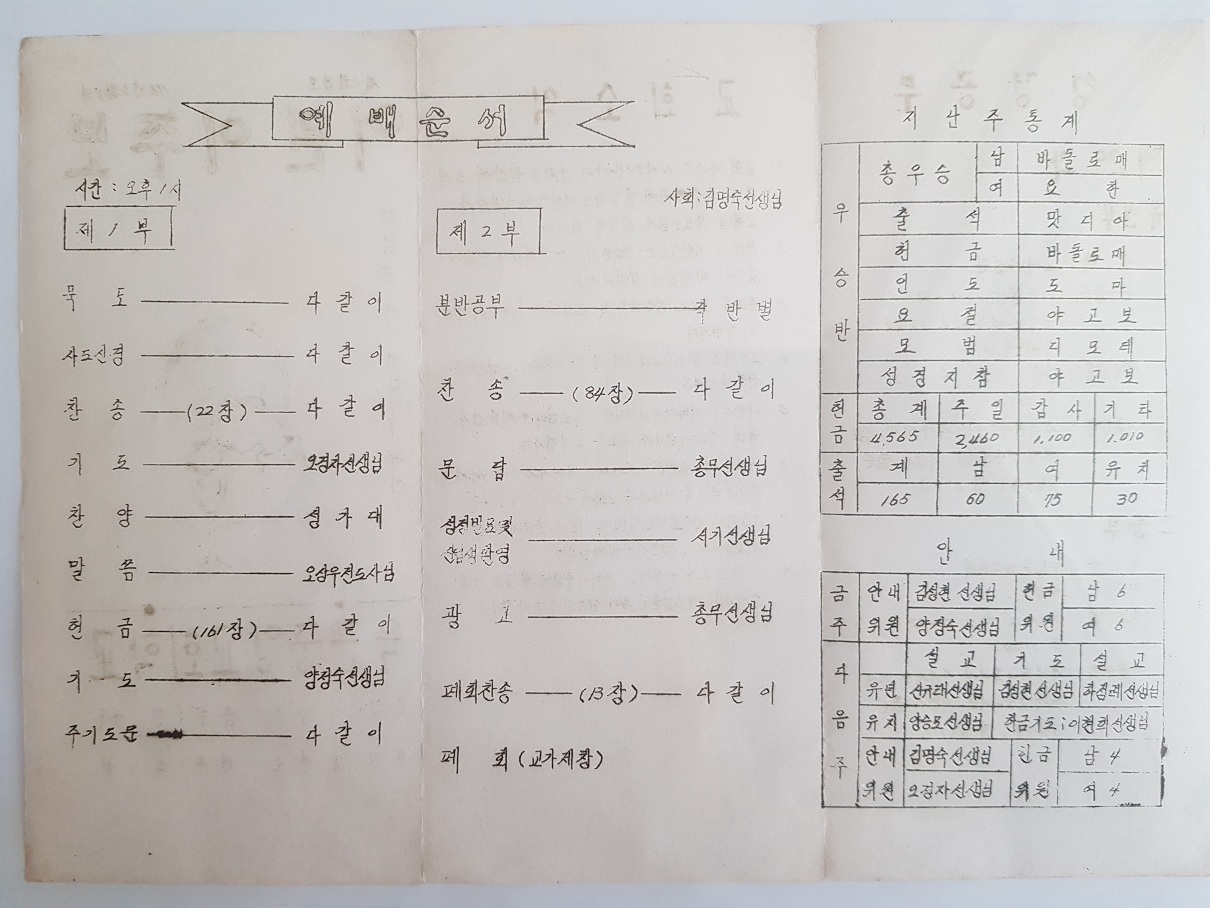 예배순서
시간 : 오후 1시
제 1 부
묵 도 다 같 이
사도신경 다 같 이
찬 송 (22장) 다 같 이
기 도 오경자선생님
찬 양 성 가 대
말 씀 오삼우전도사님
헌 금 (161장) 다 같 이
기 도 양정숙선생님
주기도문 다 같 이
사회:김명숙선생님
제 2 부
분반공부 각 반 별
찬 송 (84장) 다 같 이
문 답 총무선생님
성적발표및
신입생환영 서기선생님
광 고 총무선생님
폐회찬송 (13장) 다 같 이
폐 회 (교가제창)
지 난 주 통 계
우 승 반
총 우 승 남 바 돌 로 매
여 요 한
출 석 맛 디 아
헌 금 바돌로매
인 도 도 마
요 절 야 고 보
모 범 디 모 데
성 경 지 참 야 고 보
헌 금 총 계 주 일 감 사 기 타
4,565 2,460 1,100 1,010
출 석 계 남 여 유 치
165 60 75 30
안 내
금 주 안내 위원 김성현 선생님 헌금 위원 남 6
양정숙선생님 여 6
다 음 주 설 교 기 도 설 교
유년 선생님 선생님 선생님
유치 양승모선생님 헌금기도;이현희선생님
안내 위원 김명숙선생님 헌금 위원 남 4
오경자선생님 여 4